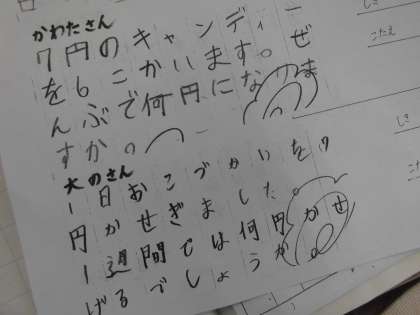 かわたさん
7円のキャンディー
を6こかいます。ぜ
んぶで何円になりま
すか。
大のさん
1日おこづかいを7
円かせぎました。
1週間では何円かせ
げるでしょうか。
しき
こたえ
しき